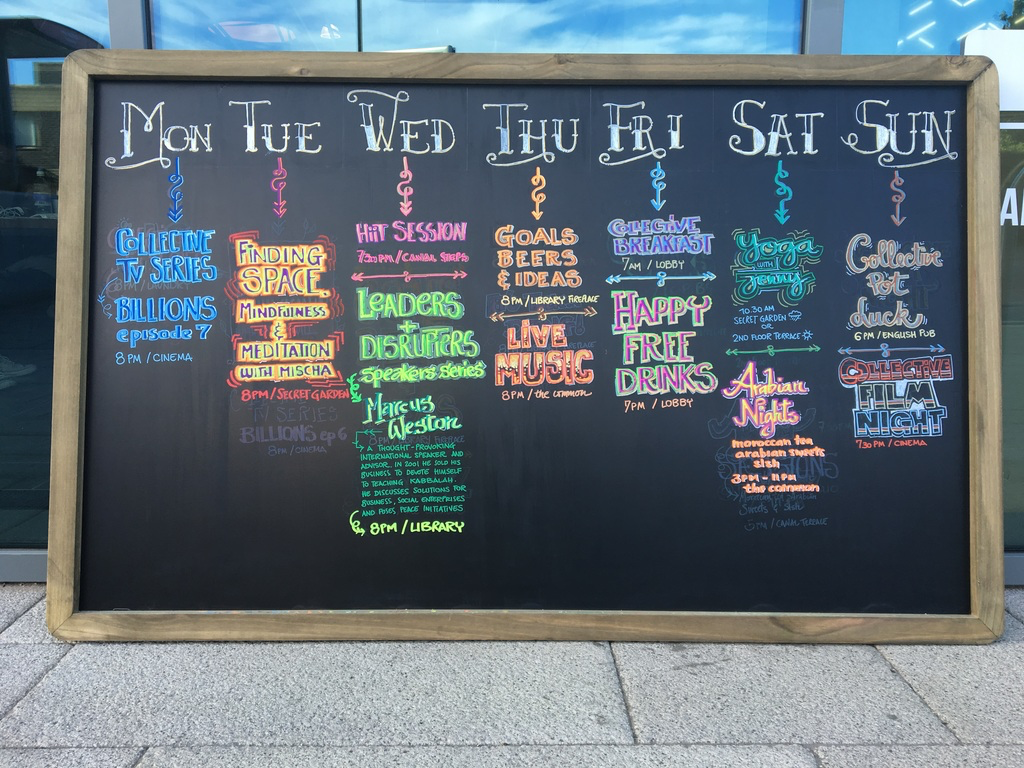 MON
TUE
WED
THU
FRI
SAT
SUN
COLLECTIVE
TV SERIES
BILLIONS
episode 7
8PM / CINEMA
FINDING
SPACE
MINDFULNESS
&
MEDITATION
WITH MISCHA
8PM / SECRET GARDEN
TV SERIES
BILLIONS ep 6
8PM / CINEMA
HiiT SESSION
7:30 AM / CANAL STEPS
LEADERS
+
DISRUPTERS
speakers series
Marcus
Weston
A THOUGHT-PROVOKING
INTERNATIONAL SPEAKER AND
ADVISOR. IN 2001 HE SOLD HIS
BUSINESS TO DEVOTE HIMSELF
TO TEACHING KABBALAH.
HE DISCUSSES SOLUTIONS FOR
BUSINESS, SOCIAL ENTERPRISES
AND POSES PEACE INITIATIVES
8PM / LIBRARY
GOALS
BEERS
& IDEAS
8PM / LIBRARY FIREPLACE
LIVE
MUSIC
8PM / the common
COLLECTIVE
BREAKFAST
7AM / LOBBY
HAPPY
FREE
DRINKS
7PM / LOBBY
yoga
WITH
Jenny
10.30 AM
SECRET GARDEN
OR
2ND FLOOR TERRACE
Arabian
Nights
moroccan tea
arabian sweets
sish
3PM - 11PM
the common
Collective
Pot
duck
6 PM / ENGLISH PUB
COLLECTIVE
FILM
NIGHT
7:30 PM / CINEMA